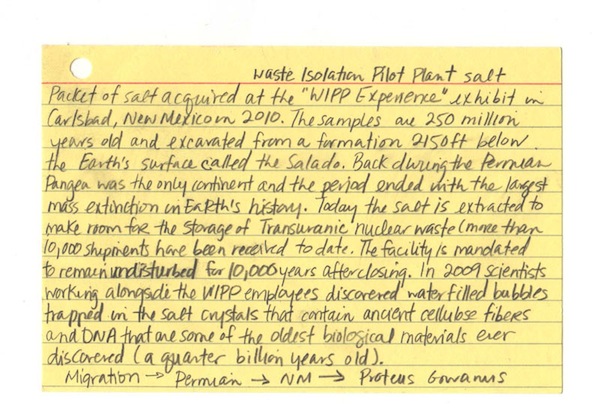 Waste Isolation Pilot Plant salt
Packet of salt acquired at the "WIPP Experience" exhibit in
Carlsbad, New Mexico in 2010. The samples are 250 million
years old and excavated from a formation 2150ft below
the Earth's surface called the Salado. Back during the Permian
Pangea was the only continent and the period ended with the largest
mass extinction in Earth's history. Today the salt is extracted to
make room for the storage of Transuranic nuclear waste (more than
10,000 shipments have been received to date. The facility is mandated
to remain undisturbed for 10,000 years after closing. In 2009 scientists
working alongside the WIPP employees discovered water filled bubbles
trapped in the salt crystals that contain ancient cellulose fibers
and DNA that are some of the oldest biological materials ever
discovered (a quarter billion years old).
Migration → Permian → NM → Proteus Gowanus